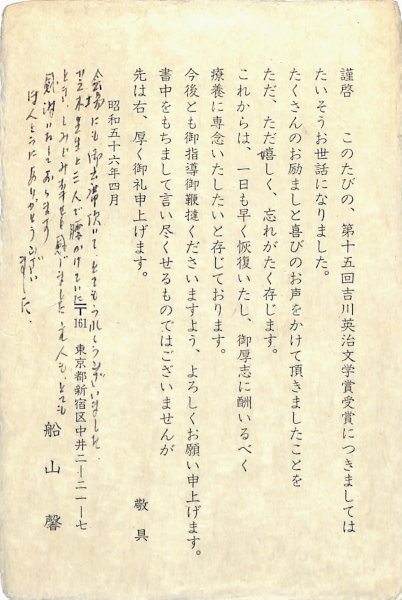 謹啓　このたびの、第十五回吉川英治文学賞受賞につきましては
たいそうお世話になりました。
たくさんのお励ましと喜びのお声をかけて頂きましたことを
ただ、ただ嬉しく、忘れがたく存じます。
これからは、一日も早く恢復いたし、御厚志に酬いるべく
療養に専念いたしたいと存じております。
今後とも御指導御鞭撻くださいますよう、よろしくお願い申上げます。
書中をもちまして言い尽くせるものではございませんが
先は右、厚く御礼申上げます。
敬具
昭和五十六年四月
〒161　東京都新宿区中井二ー二一ー七
船山馨
会場にも御出席頂いてとてもうれしうございました。
先生と三人で腰かけていた
とき、しみじみ幸せを
感謝いたしております
ほんとうにありがとうござい
ました。